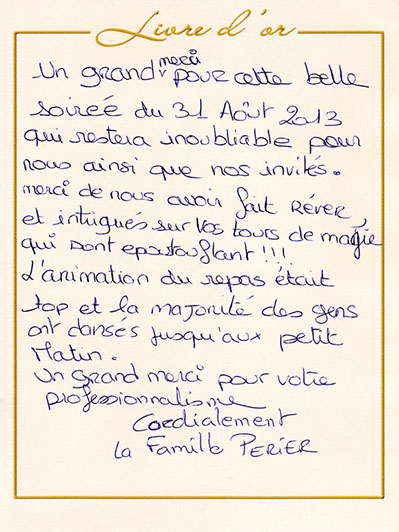 Livre d'or
Un grand merci pour cette belle
soireé du 31 Août 2013
qui restera inoubliable pour
nous ainsi que nos invités.
merci de nous avoir fait Réver,
et intrigués sur vos tours de magie
qui sont epoustouflant !!!
L'animation du repas était
top et la majorité des gens
ont dansés jusqu'aux petit
Matin.
Un grand merci pour votre
professionnalisme
Cordialement
La Famille PERIER